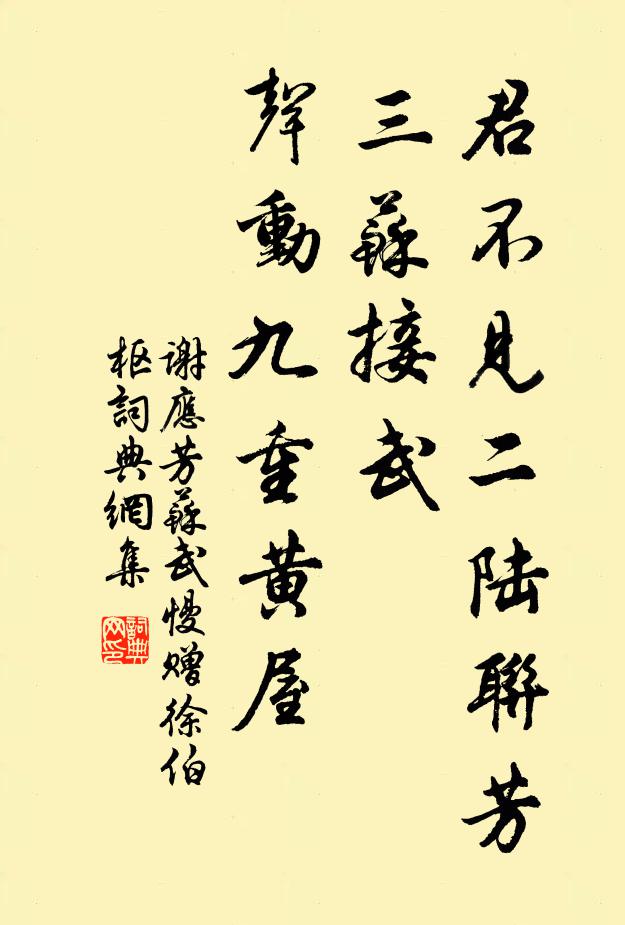 君不見二陆聯芳
三蘇接武
聲動九重黃屋
谢應芳蘇武慢赠徐伯
枢詞典網集
詞典
网印